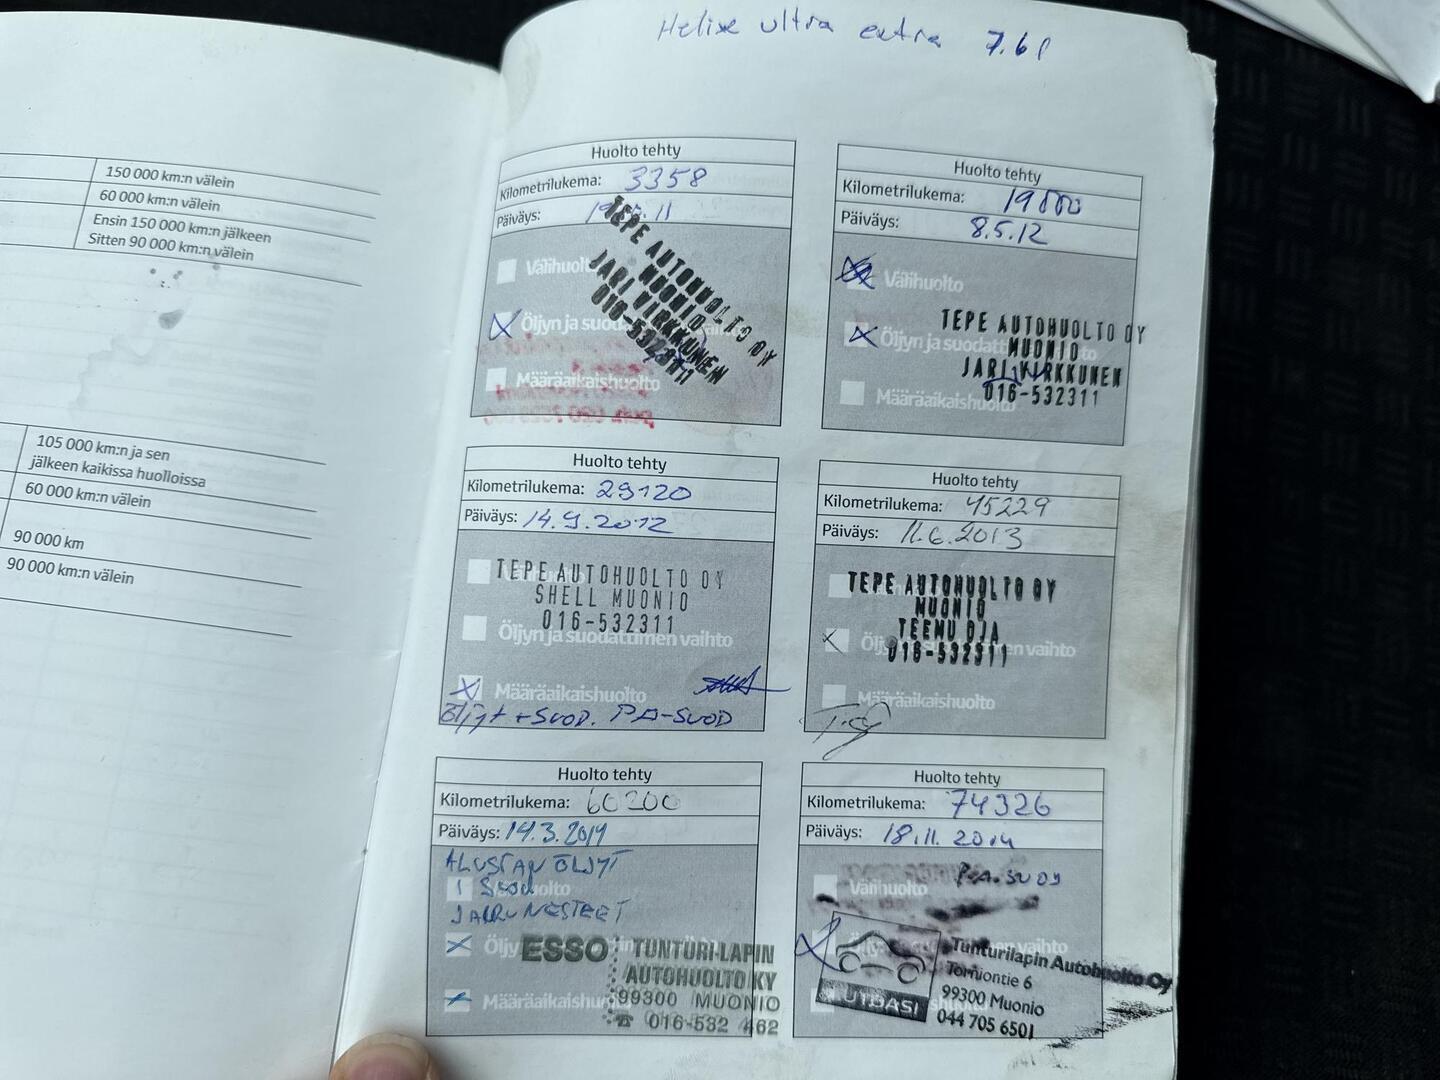 Helix ultra extra 7.6 l
150 000 km:n välein
60 000 km:n välein
Ensin 150 000 km:n jälkeen
Sitten 90 000 km:n välein
105 000 km:n ja sen
jälkeen kaikissa huolloissa
60 000 km:n välein
90 000 km
90 000 km:n välein
Huolto tehty
Kilometrilukema: 3358
Päiväys: 11
Välihuolto
Öljyn ja
Määräaikaishuolto
TEPE AUTOHUOLTO OY
MUONIO
JARI VIRKKUNEN
016-532311
Huolto tehty
Kilometrilukema:
Päiväys: 8.5.12
Välihuolto
Öljyn ja
Määräaikaishuolto
TEPE AUTOHUOLTO OY
MUONIO
JARI VIRKKUNEN
016-532311
Huolto tehty
Kilometrilukema: 29120
Päiväys: 14.9.2012
TEPE AUTOHUOLTO OY
SHELL MUONIO
016-532311
Öljyn ja suodattimen vaihto
Määräaikaishuolto
Öljyt + SUOD. PA-SUOD
Huolto tehty
Kilometrilukema: 45229
Päiväys: 11.6.2013
TEPE AUTOHUOLTO OY
MUONIO
TEEMU OJA
016-532311
vaihto
Määräaikaishuolto
Huolto tehty
Kilometrilukema: 60200
Päiväys: 14.3.2014
ALUSTAN ÖLJYT
JARRUNESTEET
ESSO TUNTURI-LAPIN
AUTOHUOLTO KY
99300 MUONIO
016-532 462
Huolto tehty
Kilometrilukema: 74326
Päiväys: 18.11.2014
P.A.SUOD
Välihuolto
vaihto
AUTOASI
Tunturilapin Autohuolto Oy
Torniontie 6
99300 Muonio
044 705 6501